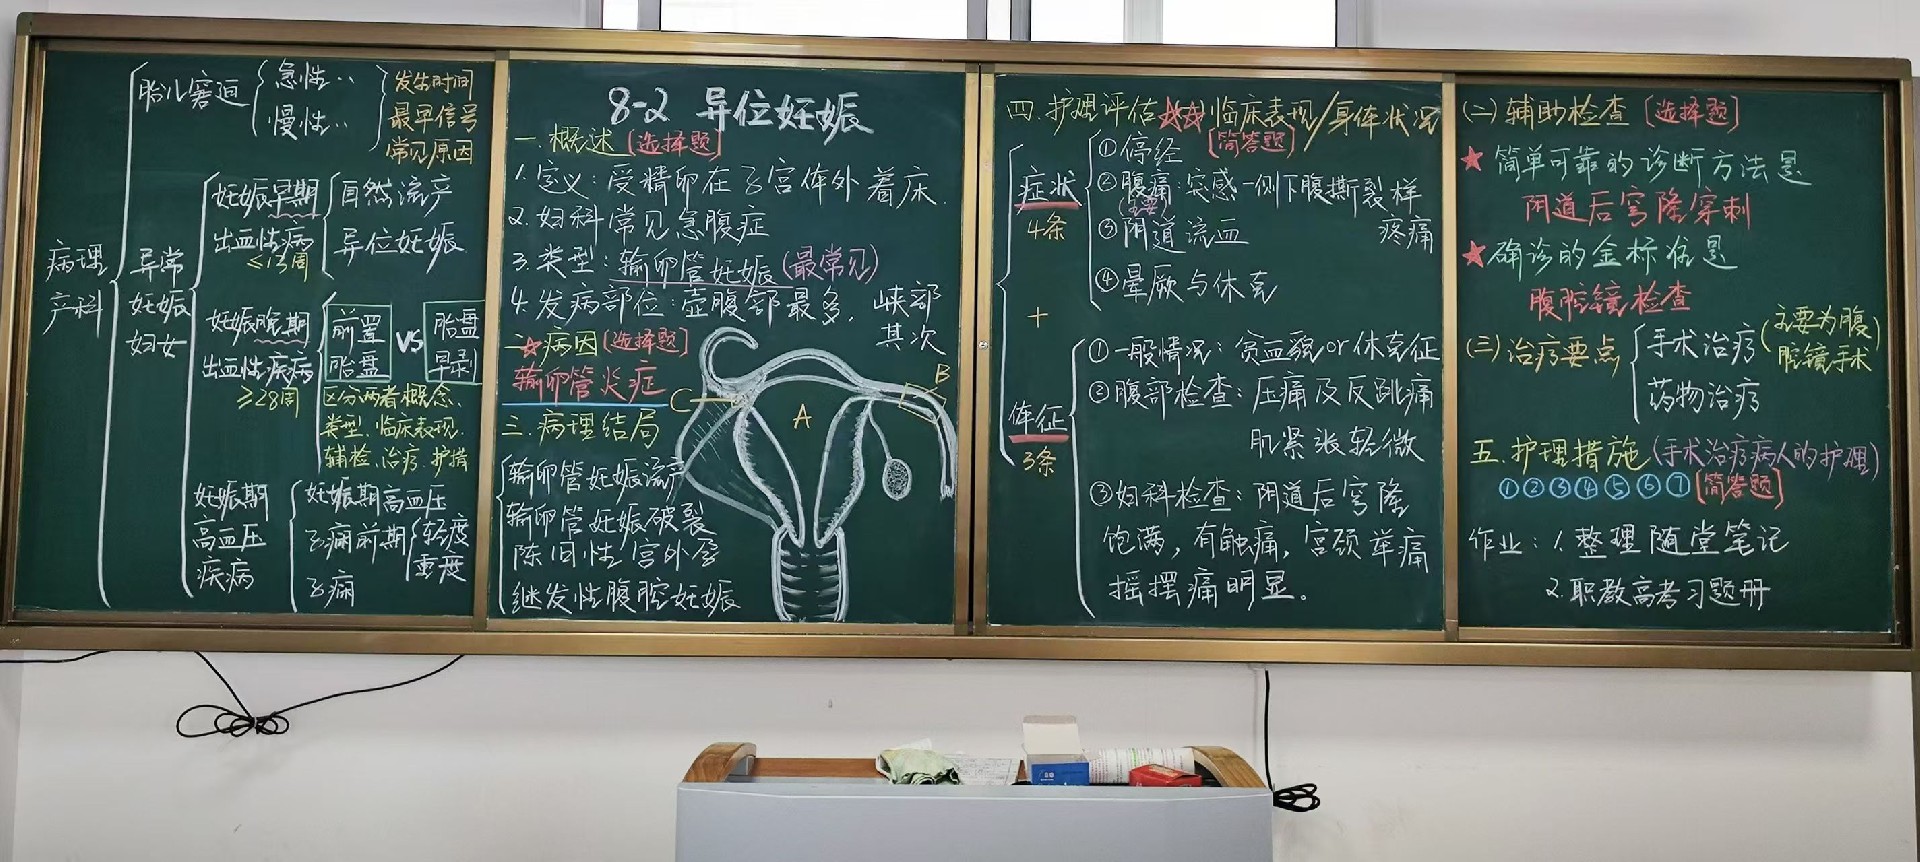 病理
产科
胎儿窘迫
急性··
慢性··
发生时间
最早信号
常见原因
异常
妊娠
妇女
妊娠早期
出血性病
≤13周
自然流产
异位妊娠
妊娠晚期
出血性疾病
≥28周
前置
胎盘
VS
胎盘
早剥
区分两者概念、
类型、临床表现、
辅检、治疗、护措
妊娠期
高血压
疾病
妊娠期高血压
子痫前期
轻度
重度
子痫
8-2 异位妊娠
一.概述[选择题]
1.定义:受精卵在子宫体外着床.
2.妇科常见急腹症
3.类型:输卵管妊娠(最常见)
4.发病部位:壶腹部最多,峡部
其次
二.★病因[选择题]
输卵管炎症
三.病理结局
输卵管妊娠流产
输卵管妊娠破裂
陈旧性宫外孕
继发性腹腔妊娠
A
B
C
四.护理评估★★临床表现/身体状况
[简答题]
症状
4条
①停经
②腹痛:突感一侧下腹撕裂样
疼痛
(主要)
③阴道流血
④晕厥与休克
+
体征
3条
①一般情况:贫血貌or休克征
②腹部检查:压痛及反跳痛
肌紧张轻微
③妇科检查:阴道后穹隆
饱满,有触痛,宫颈举痛
摇摆痛明显。
(二)辅助检查[选择题]
★简单可靠的诊断方法是
阴道后穹隆穿刺
★确诊的金标准是
腹腔镜检查
(三)治疗要点
手术治疗(主要为腹
腔镜手术)
药物治疗
五.护理措施(手术治疗病人的护理)
①②③④⑤⑥⑦[简答题]
作业:1.整理随堂笔记
2.职教高考习题册